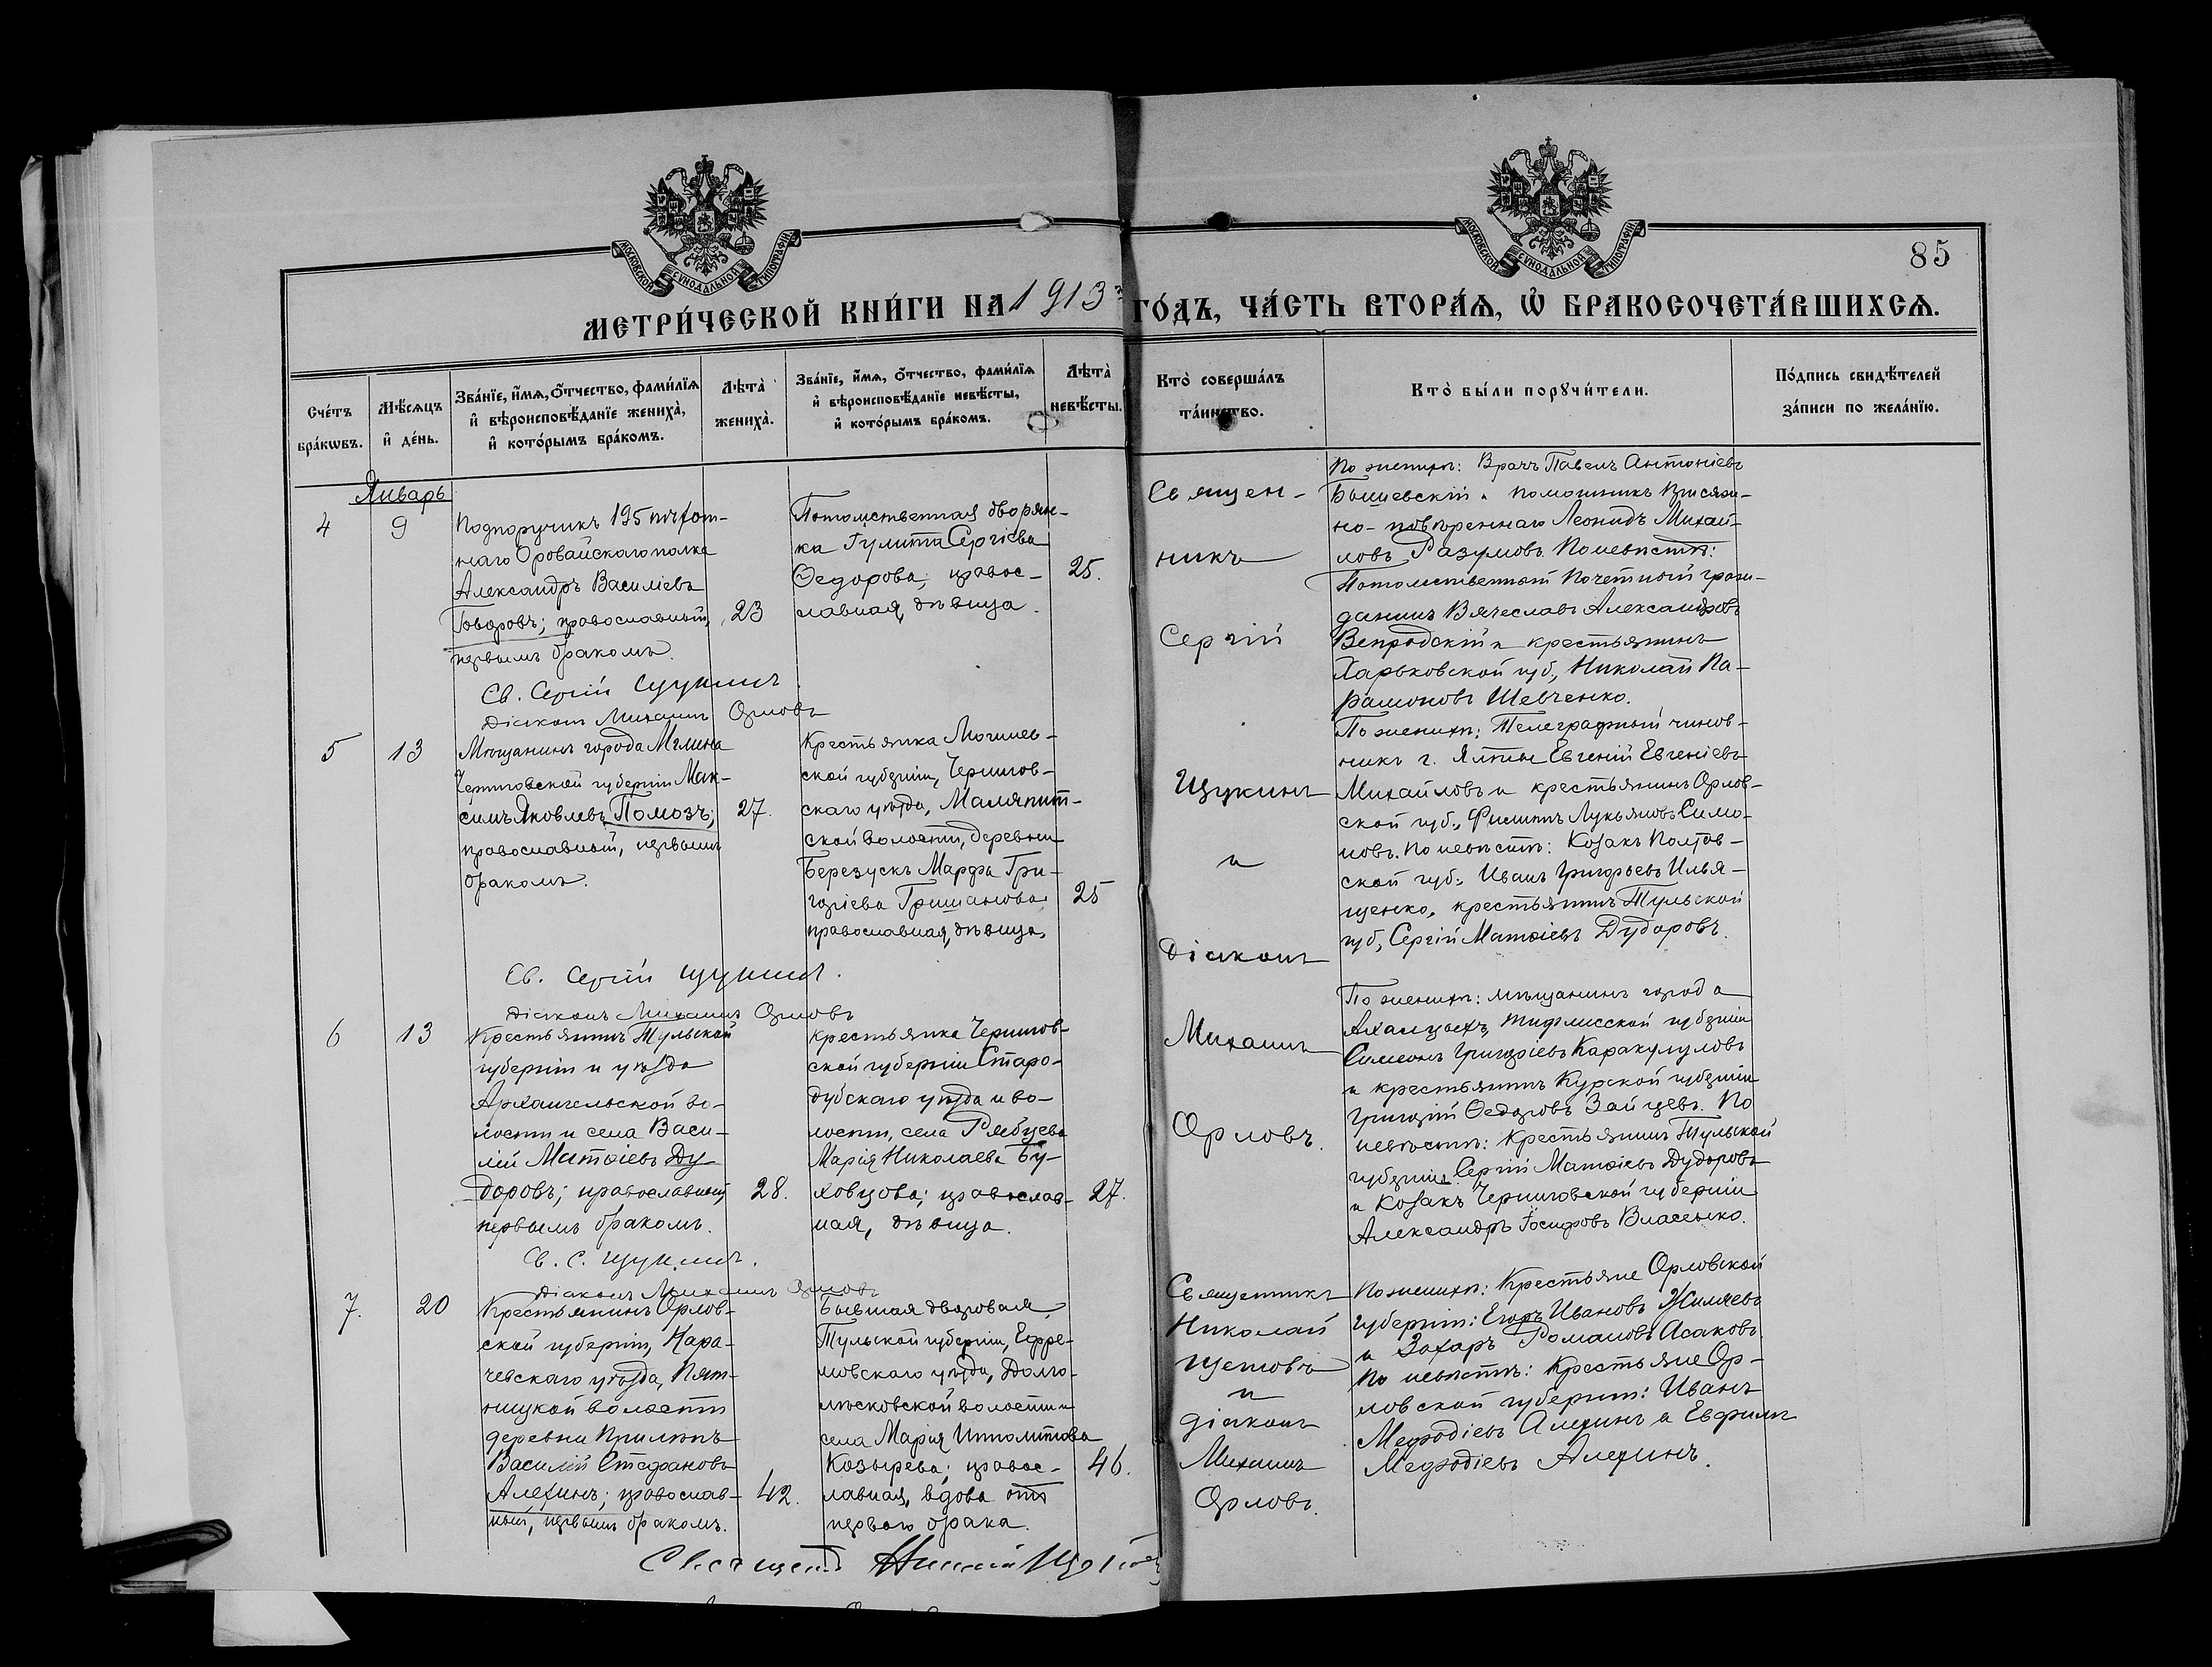 МОСКОВСКОЙ СѴНОДАЛЬНОЙ ТИПОГРАФІИ
МОСКОВСКОЙ СѴНОДАЛЬНОЙ ТИПОГРАФІИ
85
МЕТРИ́ЧЕСКОЙ КНИ́ГИ НА 1913 ГО́ДЪ, ЧА́СТЬ ВТОРА́Я, Ѡ БРАКОСОЧЕТА́ВШИХСЯ.
Сче́тъ бра́кѡвъ.
Мѣ́сяцъ и де́нь.
Зва́нїе, и́мя, о́тчество, фами́лїя
и вѣроисповѣ́данїе жениха̀,
и кото́рымъ бра́комъ.
Лѣта̀ жениха̀.
Зва́нїе, и́мя, о́тчество, фами́лїя
и вѣроисповѣ́данїе невѣ́сты,
и кото́рымъ бра́комъ.
Лѣта̀ невѣ́сты.
Кто̀ соверша́лъ та́инство.
Кто̀ бы́ли порꙋчи́тели.
По́дпись свидѣ́телей за́писи по жела́нїю.
Январь
4
9
Подпоручикъ 195 пѣхот-
наго Оровайскаго полка
Александръ Василіевъ
Говоровъ; православный,
первымъ бракомъ.
23
Потомственная дворян-
ка Гулитта Сергіева
Ѳедорова; правос-
лавная, дѣвица.
25.
Священ-
никъ
Сергій
Щукинъ
и
діаконъ
Михаилъ
Орловъ.
По женихѣ: Врачъ Павелъ Антоніевъ
и помощникъ присяж-
но-повѣреннаго Леонидъ Михай-
ловъ Разумовъ. По невѣстѣ:
Потомственный почетный граж-
данинъ Вячеславъ Александровъ
и крестьянинъ
Харьковской губ., Николай Па-
рамоновъ Шевченко.
Св. Сергій Щукинъ.
Діаконъ Михаилъ Орловъ
5
13
Мѣщанинъ города Мглина
Черниговской губерніи Мак-
симъ Яковлевъ Помозъ;
православный, первымъ
бракомъ.
27.
Крестьянка Могилев-
ской губерніи, Чериков-
скаго уѣзда, Малятит-
ской волости, деревни
Березускъ Марфа Гри-
горіева Гришанова
православная, дѣвица.
25
По женихѣ: Телеграфный чинов-
никъ г. Ялты Евгеній Евгеніевъ
Михайловъ и крестьянинъ Орлов-
ской губ., Филиппъ Лукьяновъ Симо-
новъ. По невѣстѣ: Козакъ Полтав-
ской губ., Иванъ Григорьевъ Илья-
щенко, крестьянинъ Тульской
губ., Сергій Матѳіевъ Дудоровъ.
Св. Сергій Щукинъ.
Діаконъ Михаилъ Орловъ
6
13
Крестьянинъ Тульской
губерніи и уѣзда
Архангельской во-
лости и села Васи-
лій Матѳіевъ Ду-
доровъ; православный,
первымъ бракомъ.
28.
Крестьянка Чернигов-
ской губерніи Старо-
дубскаго уѣзда и во-
лости, села Рябцева
Марія Николаева Бу-
ховцова; православ-
ная, дѣвица.
27.
По женихѣ: мѣщанинъ города
Ахалцыхъ, Тифлисской губерніи
Симеонъ Григоріевъ Каракулуловъ
и крестьянинъ Курской губерніи
Григорій Ѳедоровъ Зайцевъ. По
невѣстѣ: крестьянинъ Тульской
губерніи Сергій Матѳіевъ Дудоровъ
и Козакъ Черниговской губерніи
Александръ Іосифовъ Власенко.
Св. С. Щукинъ.
Діаконъ Михаилъ Орловъ
7.
20
Крестьянинъ Орлов-
ской губерніи, Кара-
чевскаго уѣзда, Пят-
ницкой волости
деревни Прилѣпъ
Василій Стефановъ
Алехинъ; православ-
ный, первымъ бракомъ.
42.
Бывшая дворовая,
Тульской губерніи, Ефре-
мовскаго уѣзда, Долго-
лѣсковской волости и
села Марія Ипполитова
Козырева; правос-
лавная, вдова отъ
перваго брака.
46.
Священникъ
Николай
Щегловъ
и
діаконъ
Михаилъ
Орловъ.
По женихѣ: Крестьяне Орловской
губерніи: Егоръ Ивановъ Жиляевъ
и Захаръ Романовъ Асаковъ.
По невѣстѣ: Крестьяне Ор-
ловской губерніи: Иванъ
Мефодіевъ Алехинъ и Евфимъ
Мефодіевъ Алехинъ.